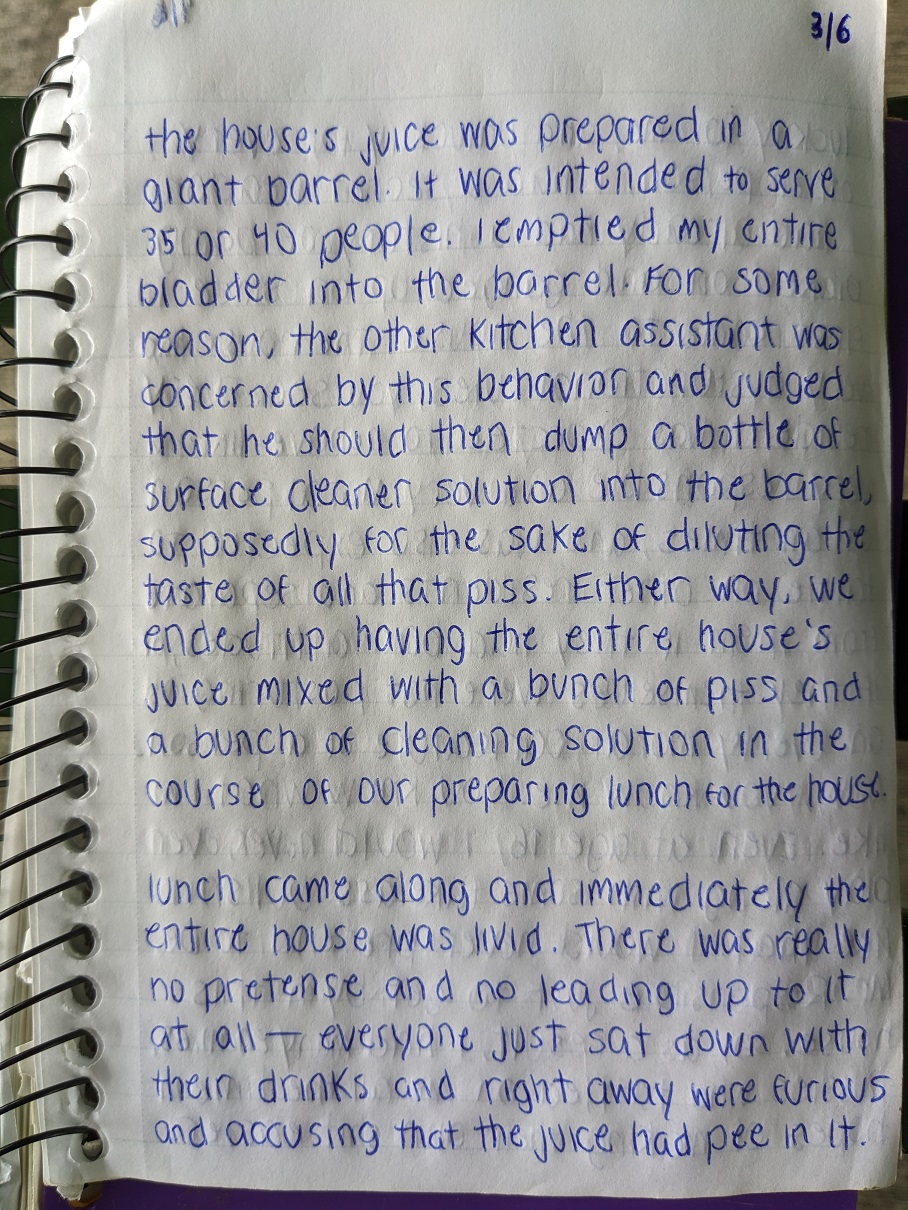 3/6
the house's juice was prepared in a
giant barrel. It was intended to serve
35 or 40 people. I emptied my entire
bladder into the barrel. For some
reason, the other kitchen assistant was
concerned by this behavior and judged
that he should then dump a bottle of
surface cleaner solution into the barrel,
supposedly for the sake of diluting the
taste of all that piss. Either way, we
ended up having the entire house's
juice mixed with a bunch of piss and
a bunch of cleaning solution in the
course of our preparing lunch for the house.
lunch came along and immediately the
entire house was livid. There was really
no pretense and no leading up to it
at all — everyone just sat down with
their drinks and right away were furious
and accusing that the juice had pee in it.